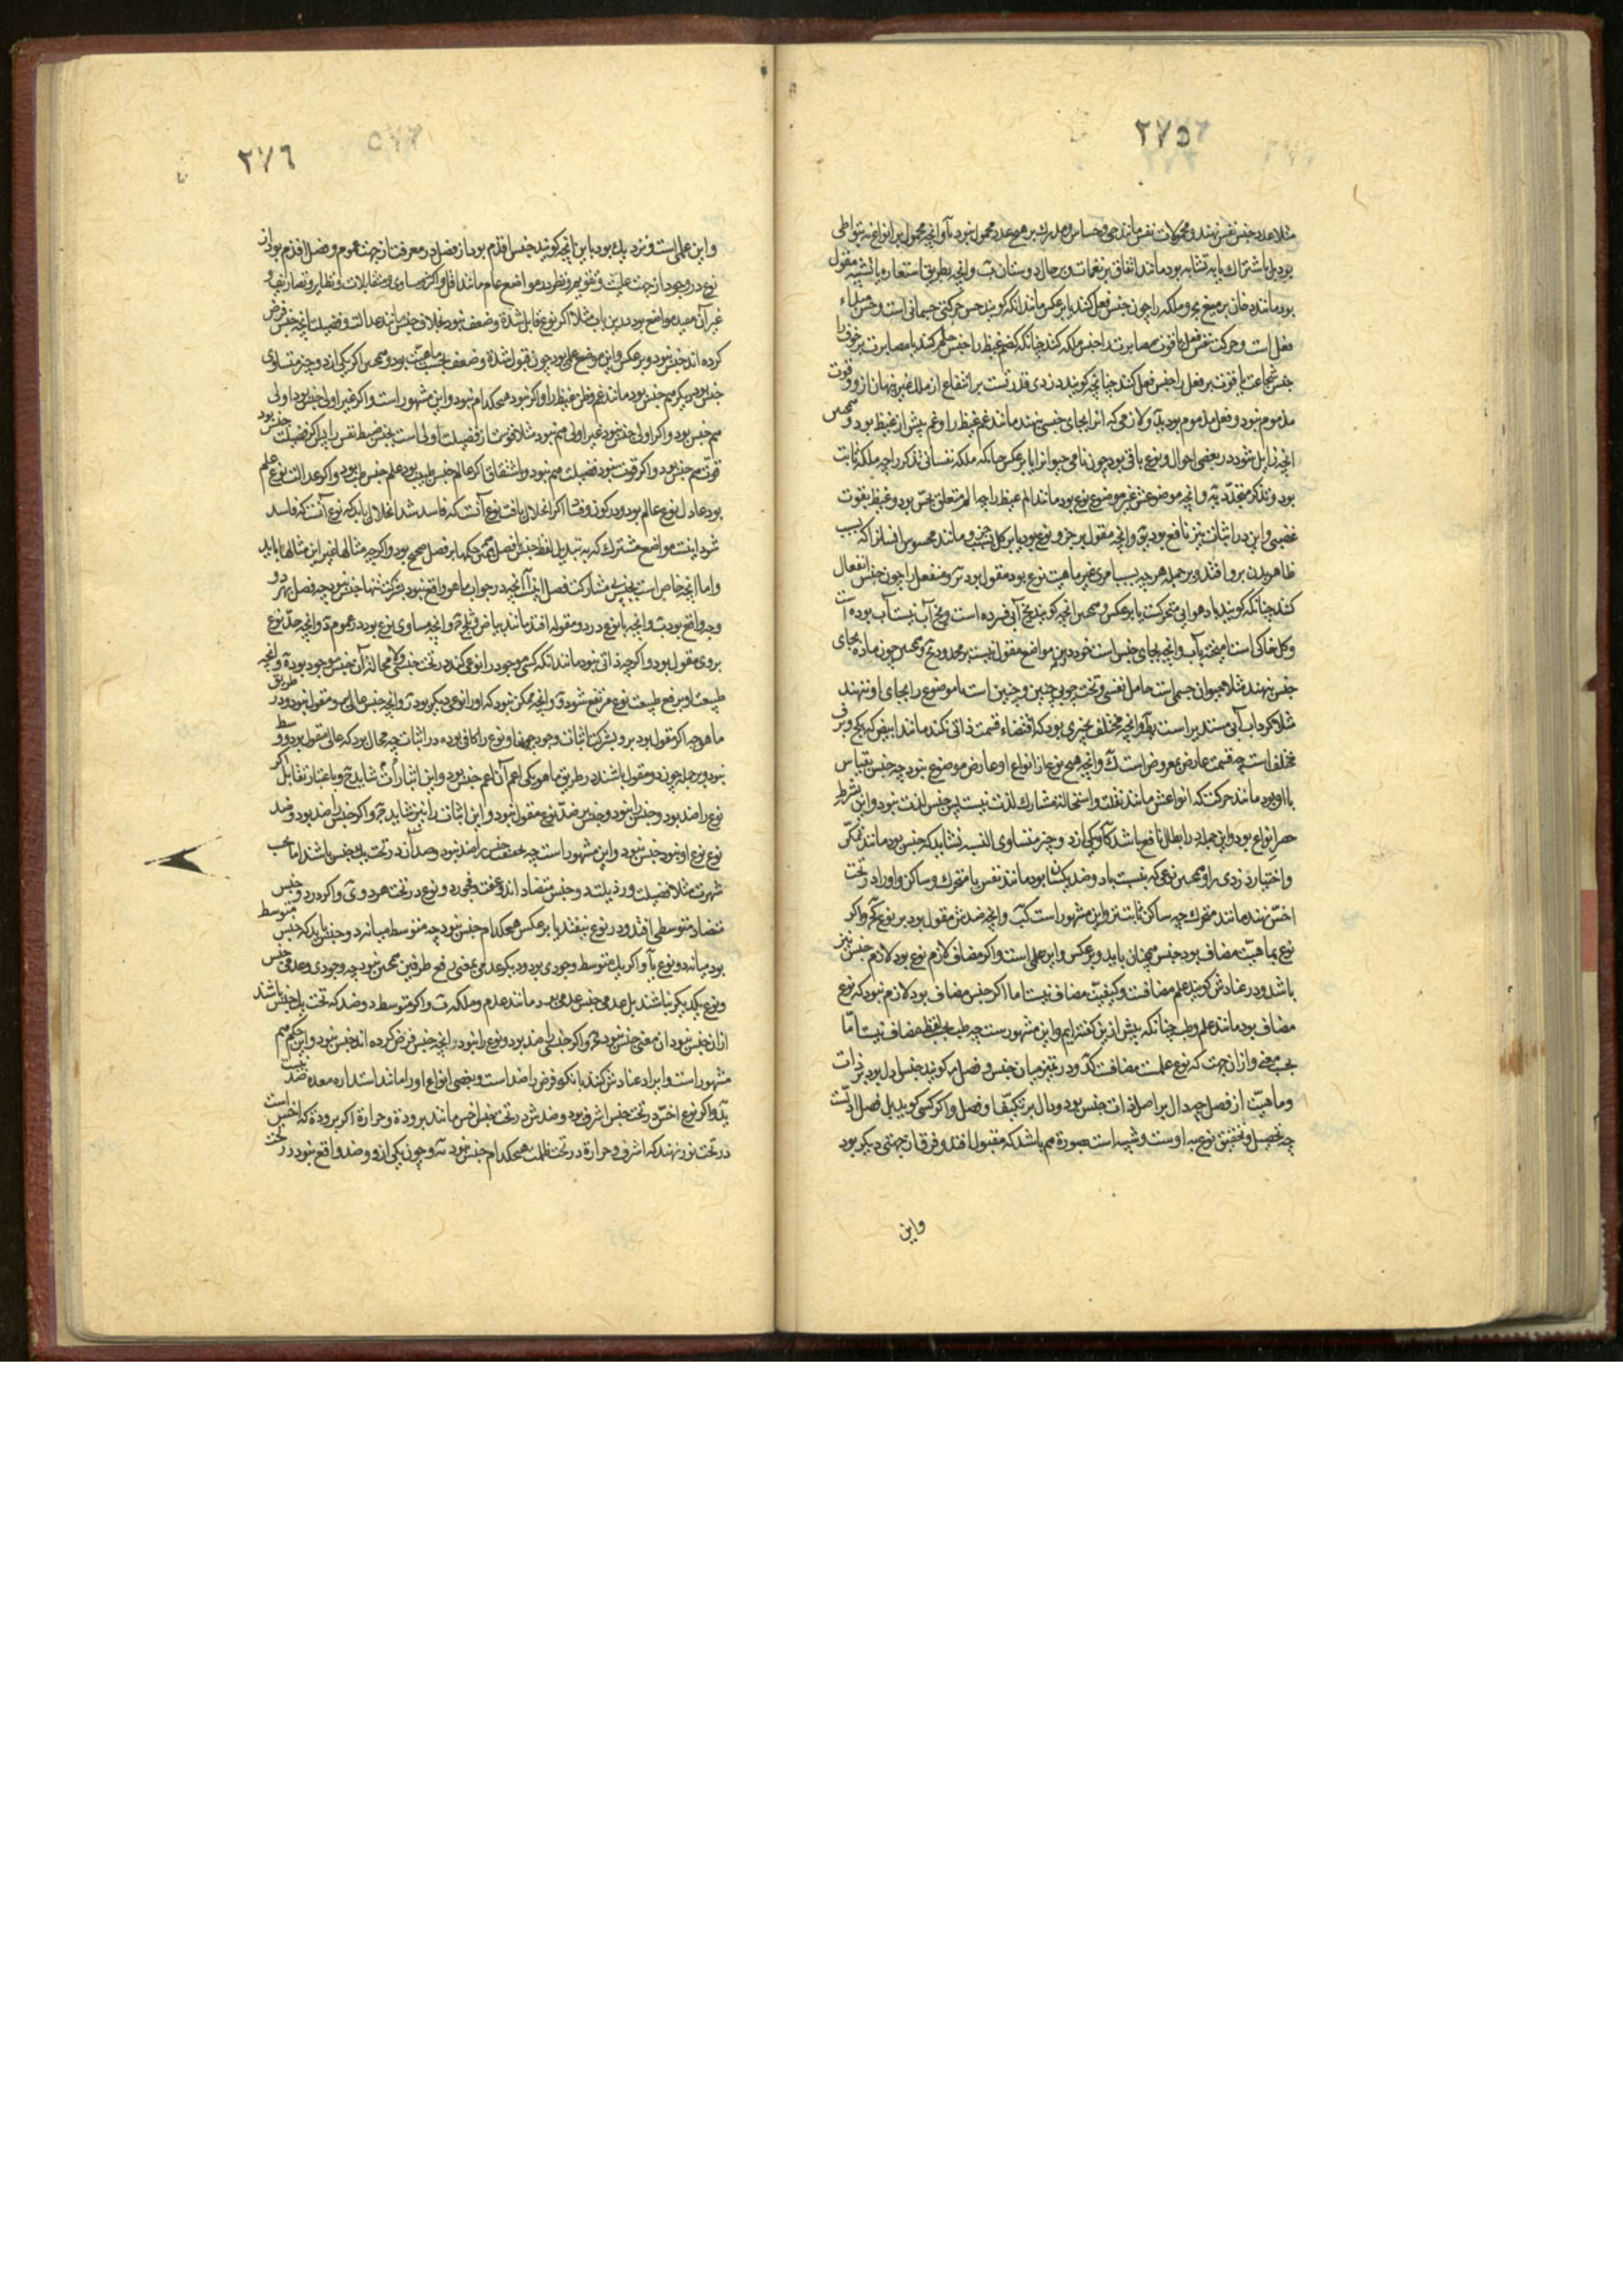 ٢٧٥
مثلا عدد جنس نفس نهند و محمولات نفس مانند حی و حساس و مدرک بر هیچ عدد محمول نبود و آنچه محمول بر انواع نه بتواطی
بود بل باشتراک یا به تشابه بود مانند اتفاق بر نغمات و بر حال دوستان و آنچه بطریق استعاره یا تشبیه مقول
بود مانند و ملکه را چون جنس فعل کنند یا برعکس مانند آنکه گویند حس حرکتی جسمانی است و حس مبداء
فعل است و حرکت نفس فعل یا قوت مصابرت را جنس ملکه کنند چنانکه کظم غیظ را جنس حلم کنند یا مصابرت بر خوف را
جنس شجاعت یا قوت بر فعل را جنس فعل کنند چنانچه گویند دزدی قدرتست بر انتفاع از ملک غیر پنهان ازو و قوت
مذموم نبود و فعل مذموم بود و لازمی که اثر بجای جنسی نهند مانند غم غیظ را و غم پیش از غیظ بود و همچنین
آنچه زایل شود در بعضی احوال و نوع باقی بود چون نامی حیوان را یا برعکس چنانکه ملکه نفسانی تذکر را چه ملکه ثابت
بود و تذکر متجدد و آنچه موضوعش غیر موضوع نوع بود مانند الم غیظ را چه الم متعلق بحس بود و غیظ بقوت
غضبی و این در اثبات نیز نافع بود و آنچه مقول بر جزو نوع بود یا بر کل بسبب جزو مانند محسوس انسان را که بسبب
ظاهر بدن برو افتد و بر جمله هرچه بسبب امری غیر ماهیت نوع بود مقول بود و منفعل را چون جنس انفعال
کنند چنانکه گویند باد هوایی متحرکست یا برعکس و همچنین آنچه گویند یخ آبی فسرده است و یخ آب نیست آب بوده است
و گل خاکی است آمیخته بآب و آنچه بجای جنس است خود درین مواضع مقول نیست بر محدود و همچنین چون ماده بجای
جنس نهند مثلا حیوان جسمی است حامل نفسی و تخت چوبی چنین و چنین است یا موضوع را بجای او نهند
مثلا گرداب آبی مستدیر است و آنچه مختلف بچیزی بود که اقتضاء قسمت ذاتی نکند مانند ابیض که بگچ و برف
مختلف است چه قسمت عارض بمعروض است و آنچه هیچ نوع از انواع او عارض موضوع نبود چه جنس بقیاس
با او بود مانند حرکت که انواعش مانند نقلت و استحالت مشارک لذت نیست پس جنس لذت نبود و این بشرط
حصر انواع بود و این جمله در ابطال نافع باشد و یکی از دو چیز متساوی النسبه نشاید که جنس بود مانند تمکن
و اختیار دزدی را و همچنین نوعی که بنسبت با دو ضد یکسان بود مانند نفس با متحرک و ساکن و او را در تحت
اخس نهند مانند متحرک چه ساکن ثابت‌تر و این مشهور است و آنچه ضدش مقول بود بر نوع و اگر
نوع بماهیت مضاف بود جنس همچنان باید و برعکس و این علمی است و اگر مضاف لازم نوع بود لازم جنس نیز
باشد و در عنادش گویند علم مضافست و کیفیت مضاف نیست اما اگر جنس مضاف بود لازم نبود که نوع
مضاف بود مانند علم و طب چنانکه پیش ازین گفته‌ایم و این مشهور ست چه طب بحسب لفظ مضاف نیست اما
بحسب معنی و از آن جهت که نوع علمست مضافست و در تمییز میان جنس و فصل گویند جنس ادل بود بر ذات
و ماهیت از فصل چه دال بر اصل ذات جنس بود و دال بر تکیف او فصل و اگر کسی گوید بل فصل ادلست
چه تحصیل و تحقیق نوع به اوست و شبیه است بصورة هم باشد که مقبول افتد و فرق از جهتی دیگر بود
و این
٢٧٦
و این علمی است و نزدیک بود باین آنچه گویند جنس اقدم بود از فصل در معرفت از جهت عموم و فصل اقدم بود از
نوع در وجود از جهت علیت و تقویم و نظر در مواضع عام مانند اقل و اکثر و مساوی و متقابلات و نظایر و تصاریف و
غیر آن مفید مواضع بود درین باب مثلا اگر نوع قابل شدة و ضعف نبود بخلاف جنس مانند عدالت و فضیلت آنچه جنس فرض
کرده‌اند جنس نبود و برعکس و این موضع علمی بود چون قبول شدة و ضعف بحسب ماهیت بود و همچنین اگر یکی از دو چیز متساوی
جنس بود دیگر هم جنس بود مانند غم و ظن غیظ را و اگر نبود هیچکدام نبود و این مشهور است و اگر غیر اولی جنس بود اولی
هم جنس بود و اگر اولی جنس نبود غیر اولی هم نبود مثلا قوت از فضیلت اولی است بجنس ضبط نفس را پس اگر فضیلت جنس بود
قوت هم جنس بود و اگر قوت نبود فضیلت هم نبود و باشتقاق اگر عالم جنس طبیب بود علم جنس طب بود و اگر عدالت نوع علم
بود عادل نوع عالم بود و در کون و فساد اگر انحلال یافت نوع آنست که فاسد شد انحلال یابد که نوع آنست که فاسد
شود اینست مواضع مشترک که به تبدیل لفظ جنس بفصل همه حکمها بر فصل صحیح بود و اگرچه مثالها غیر این مثالها باید
و اما آنچه خاص است بجنس بی مشارکت فصل اینست آنچه در جواب ماهو واقع نبود بشرکت تنها جنس نبود چه فصل بهر دو
وجه واقع بود و آنچه با نوع در دو مقوله افتد مانند بیاض و ثلج و آنچه مساوی نوع بود در عموم و آنچه حد نوع
بر وی مقول بود و اگرچه ذاتی نبود مانند آنکه کسی موجود را نوعی کند در تحت جنسی و لا محاله آن جنس موجود بود و آنچه
طبیعت او برفع طبیعت نوع مرتفع شود و آنچه ممکن نبود که او را نوعی دیگر بود و آنچه جنس عالی برو مقول نبود در طریق
ماهو چه اگر مقول بود برو بشرکت اثبات وجود جنس او نوع را کافی بوده در اثبات چه محال بود که عالی مقول بود و وسط
نبود و بر جمله چون دو مقول باشند در طریق ماهو یکی اعم آن اعم جنس بود و این اثبات را شاید و باعتبار تقابل اگر
نوع را ضد بود و جنس را نبود و جنس بر ضد نوع مقول نبود و این اثبات را نیز شاید و اگر جنس را ضد بود و ضد
نوع نوع او نبود جنس نبود و این مشهور است چه بحقیقت جنس را ضد نبود و ضدان در تحت یک جنس باشند اما بحسب
شهرت مثلا فضیلت و رذیلت دو جنس متضاد اند و عفت و فجور دو نوع در تحت هر دو و اگر در دو جنس
متضاد متوسطی افتد و در نوع نیفتد یا برعکس هیچکدام جنس نبود چه متوسط میانه دو جنس باید که جنس متوسط
بود میانه دو نوع و اگر یک متوسط وجودی بود و دیگر عدمی بمعنی رفع طرفین همچنین نبود چه وجودی و عدمی جنس
و نوع یکدیگر نباشند بل عدمی جنس عدمی بود مانند عدم و ملکه و اگر متوسط دو ضد که تحت یک جنس باشند
از آن جنس نبود آن معنی جنس نبود و اگر جنس را ضد بود و نوع را نبود آنچه جنس فرض کرده‌اند جنس نبود و این حکم هم
مشهور است و ایراد عنادش کنند بآنکه مرض را ضد است و بعضی انواع او را مانند استداره معده ضد نیست
و اگر نوع اخس در تحت جنس اشرف بود و ضدش در تحت جنس اخس مانند برودة و حرارة اگر برودة که اخس است
در تحت نور نهند که اشرف و حرارة در تحت ظلمت هیچکدام جنس نبود و چون یکی از دو ضد واقع نبود در تحت